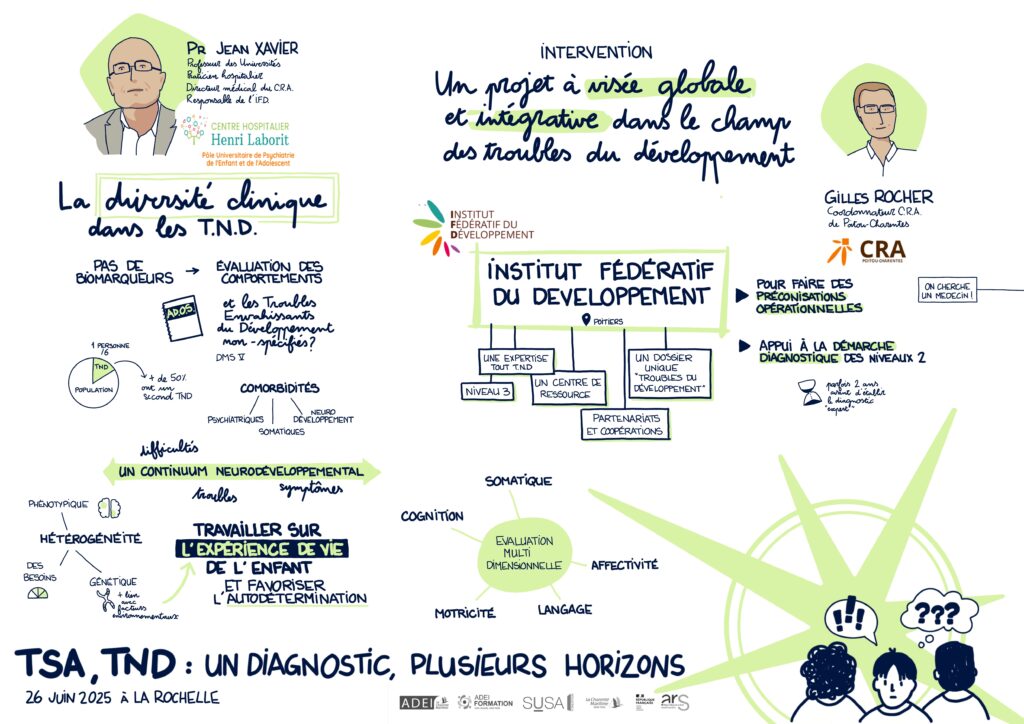 Pr Jean XAVIER
Professeur des Universités
Praticien hospitalier
Directeur médical du C.R.A.
Responsable de l'I.F.D.
CENTRE HOSPITALIER
Henri Laborit
Pôle Universitaire de Psychiatrie
de l'Enfant et de l'Adolescent
La diversité clinique
dans les T.N.D.
PAS DE
BIOMARQUEURS
ÉVALUATION DES
COMPORTEMENTS
A.D.O.S.
et les Troubles
Envahissants
du Développement
non-spécifiés?
DMS V
1 PERSONNE
/6
TND
POPULATION
+ de 50%
ont un
second TND
COMORBIDITÉS
PSYCHIATRIQUES
SOMATIQUES
NEURO
DÉVELOPPEMENT
difficultés
UN CONTINUUM NEURODÉVELOPPEMENTAL
troubles
symptômes
PHÉNOTYPIQUE
HÉTÉROGÉNÉITÉ
DES
BESOINS
GÉNÉTIQUE
+ lien
avec
facteurs
environnementaux
TRAVAILLER SUR
L'EXPÉRIENCE DE VIE
DE L'ENFANT
ET FAVORISER
L'AUTODÉTERMINATION
INTERVENTION
Un projet à visée globale
et intégrative dans le champ
des troubles du développement
GILLES ROCHER
Coordonnateur C.R.A.
de Poitou-Charentes
CRA
POITOU CHARENTES
INSTITUT
FÉDÉRATIF DU
DÉVELOPPEMENT
INSTITUT FÉDÉRATIF
DU DEVELOPPEMENT
POITIERS
UNE EXPERTISE
TOUT T.N.D
NIVEAU 3
UN CENTRE DE
RESSOURCE
UN DOSSIER
UNIQUE
"TROUBLES DU
DÉVELOPPEMENT"
PARTENARIATS
ET COOPÉRATIONS
POUR FAIRE DES
PRÉCONISATIONS
OPÉRATIONNELLES
ON CHERCHE
UN MEDECIN!
APPUI À LA DÉMARCHE
DIAGNOSTIQUE DES NIVEAUX 2
parfois 2 ans
avant d'établir
le diagnostic
"expert"
SOMATIQUE
COGNITION
EVALUATION
MULTI
DIMENSIONNELLE
AFFECTIVITÉ
MOTRICITÉ
LANGAGE
!!!
???
TSA, TND : UN DIAGNOSTIC, PLUSIEURS HORIZONS
26 JUIN 2025 À LA ROCHELLE
ADEI
ADEI
FORMATION
SUSA
RÉPUBLIQUE
FRANÇAISE
ars